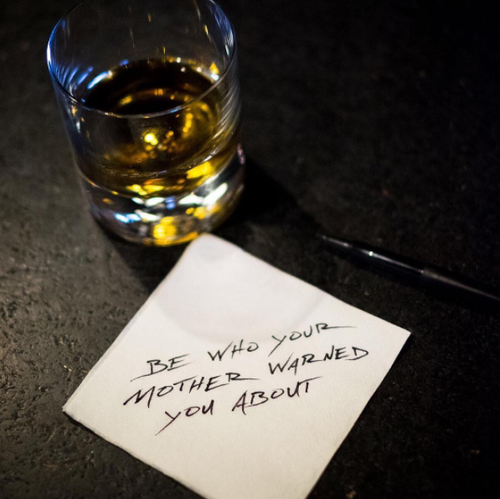 BE WHO YOUR
MOTHER WARNED
YOU ABOUT